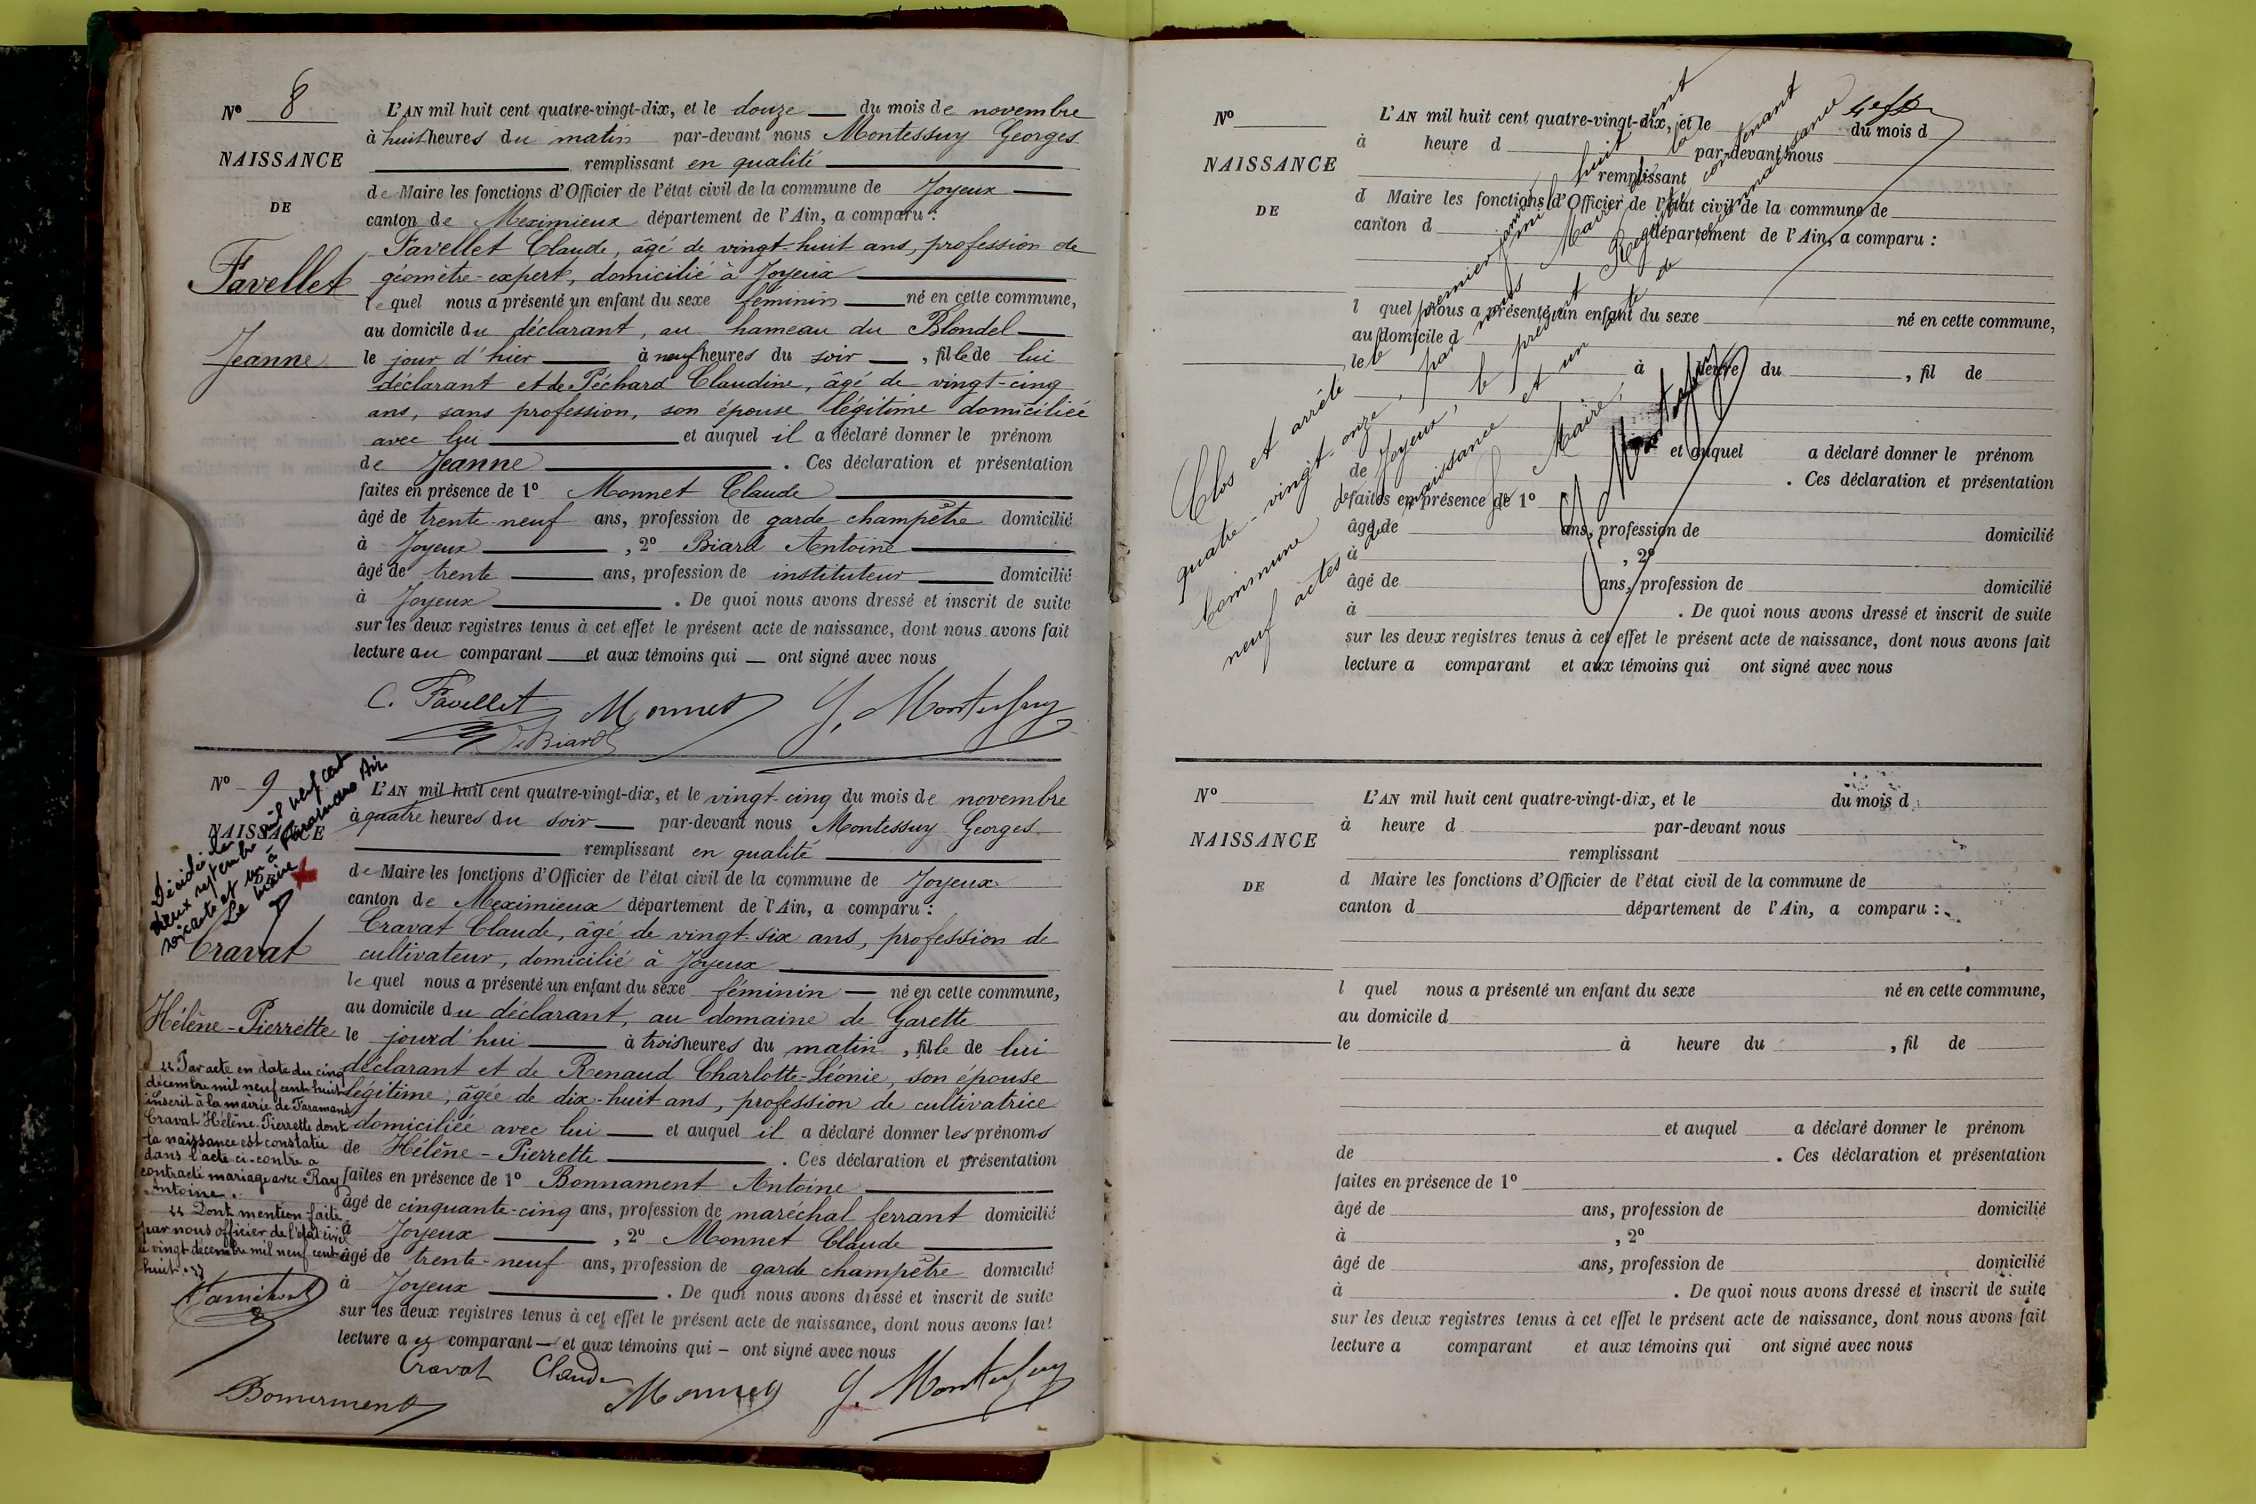 N° 8
NAISSANCE
DE
Favellet
Jeanne
L'AN mil huit cent quatre-vingt-dix, et le douze du mois de novembre
à huit heures du matin par-devant nous Montessuy Georges
remplissant en qualité
de Maire les fonctions d'Officier de l'état civil de la commune de Joyeux
canton de Meximieux département de l'Ain, a comparu :
Favellet Claude, âgé de vingt-huit ans, profession de
géomètre-expert, domicilié à Joyeux
lequel nous a présenté un enfant du sexe féminin né en cette commune,
au domicile du déclarant, au hameau du Blondel
le jour d'hier à neuf heures du soir, fille de lui
déclarant et de Péchard Claudine, âgé de vingt-cinq
ans, sans profession, son épouse légitime domiciliée
avec lui et auquel il a déclaré donner le prénom
de Jeanne. Ces déclaration et présentation
faites en présence de 1° Monnet Claude
âgé de trente-neuf ans, profession de garde champêtre domicilié
à Joyeux, 2° Biard Antoine
âgé de trente ans, profession de instituteur domicilié
à Joyeux. De quoi nous avons dressé et inscrit de suite
sur les deux registres tenus à cet effet le présent acte de naissance, dont nous avons fait
lecture au comparant et aux témoins qui ont signé avec nous
C. Favellet Monnet G. Montessuy
Biard
N° 9
NAISSANCE
DE
Décédée le
deux septembre mil neuf cent
soixante et un à Faramans Ain
Le Maire
Cravat
Hélène-Pierrette
L'AN mil huit cent quatre-vingt-dix, et le vingt-cinq du mois de novembre
à quatre heures du soir par-devant nous Montessuy Georges
remplissant en qualité
de Maire les fonctions d'Officier de l'état civil de la commune de Joyeux
canton de Meximieux département de l'Ain, a comparu :
Cravat Claude, âgé de vingt-six ans, profession de
cultivateur, domicilié à Joyeux
lequel nous a présenté un enfant du sexe féminin né en cette commune,
au domicile du déclarant, au domaine de Garette
le jourd'hui à trois heures du matin, fille de lui
déclarant et de Renaud Charlotte-Léonie, son épouse
légitime, âgée de dix-huit ans, profession de cultivatrice
domiciliée avec lui et auquel il a déclaré donner les prénoms
de Hélène-Pierrette. Ces déclaration et présentation
faites en présence de 1° Bonnament Antoine
âgé de cinquante-cinq ans, profession de maréchal ferrant domicilié
à Joyeux, 2° Monnet Claude
âgé de trente-neuf ans, profession de garde champêtre domicilié
à Joyeux. De quoi nous avons dressé et inscrit de suite
sur les deux registres tenus à cet effet le présent acte de naissance, dont nous avons fait
lecture au comparant et aux témoins qui ont signé avec nous
"Par acte en date du cinq
décembre mil neuf cent huit
inscrit à la mairie de Faramans
Cravat Hélène-Pierrette dont
la naissance est constatée
dans l'acte ci-contre a
contracté mariage avec Ray
Antoine.
"Dont mention faite
par nous officier de l'état civil
le vingt décembre mil neuf cent
huit."
Cravat Claude
Bonnament Monnet G. Montessuy
N°
NAISSANCE
DE
L'AN mil huit cent quatre-vingt-dix, et le du mois d
à heure d par-devant nous
remplissant
d Maire les fonctions d'Officier de l'état civil de la commune de
canton d département de l'Ain, a comparu :
l quel nous a présenté un enfant du sexe né en cette commune,
au domicile d
le à heure du , fil de
et auquel a déclaré donner le prénom
de . Ces déclaration et présentation
faites en présence de 1°
âgé de ans, profession de domicilié
à , 2°
âgé de ans, profession de domicilié
à . De quoi nous avons dressé et inscrit de suite
sur les deux registres tenus à cet effet le présent acte de naissance, dont nous avons fait
lecture a comparant et aux témoins qui ont signé avec nous
Clos et arrêté le premier janvier mil huit cent
quatre-vingt-onze, par nous Maire de la
Commune de Joyeux, le présent Registre contenant
neuf actes de naissance et un de
Le Maire,
G. Montessuy
N°
NAISSANCE
DE
L'AN mil huit cent quatre-vingt-dix, et le du mois d
à heure d par-devant nous
remplissant
d Maire les fonctions d'Officier de l'état civil de la commune de
canton d département de l'Ain, a comparu :
l quel nous a présenté un enfant du sexe né en cette commune,
au domicile d
le à heure du , fil de
et auquel a déclaré donner le prénom
de . Ces déclaration et présentation
faites en présence de 1°
âgé de ans, profession de domicilié
à , 2°
âgé de ans, profession de domicilié
à . De quoi nous avons dressé et inscrit de suite
sur les deux registres tenus à cet effet le présent acte de naissance, dont nous avons fait
lecture a comparant et aux témoins qui ont signé avec nous